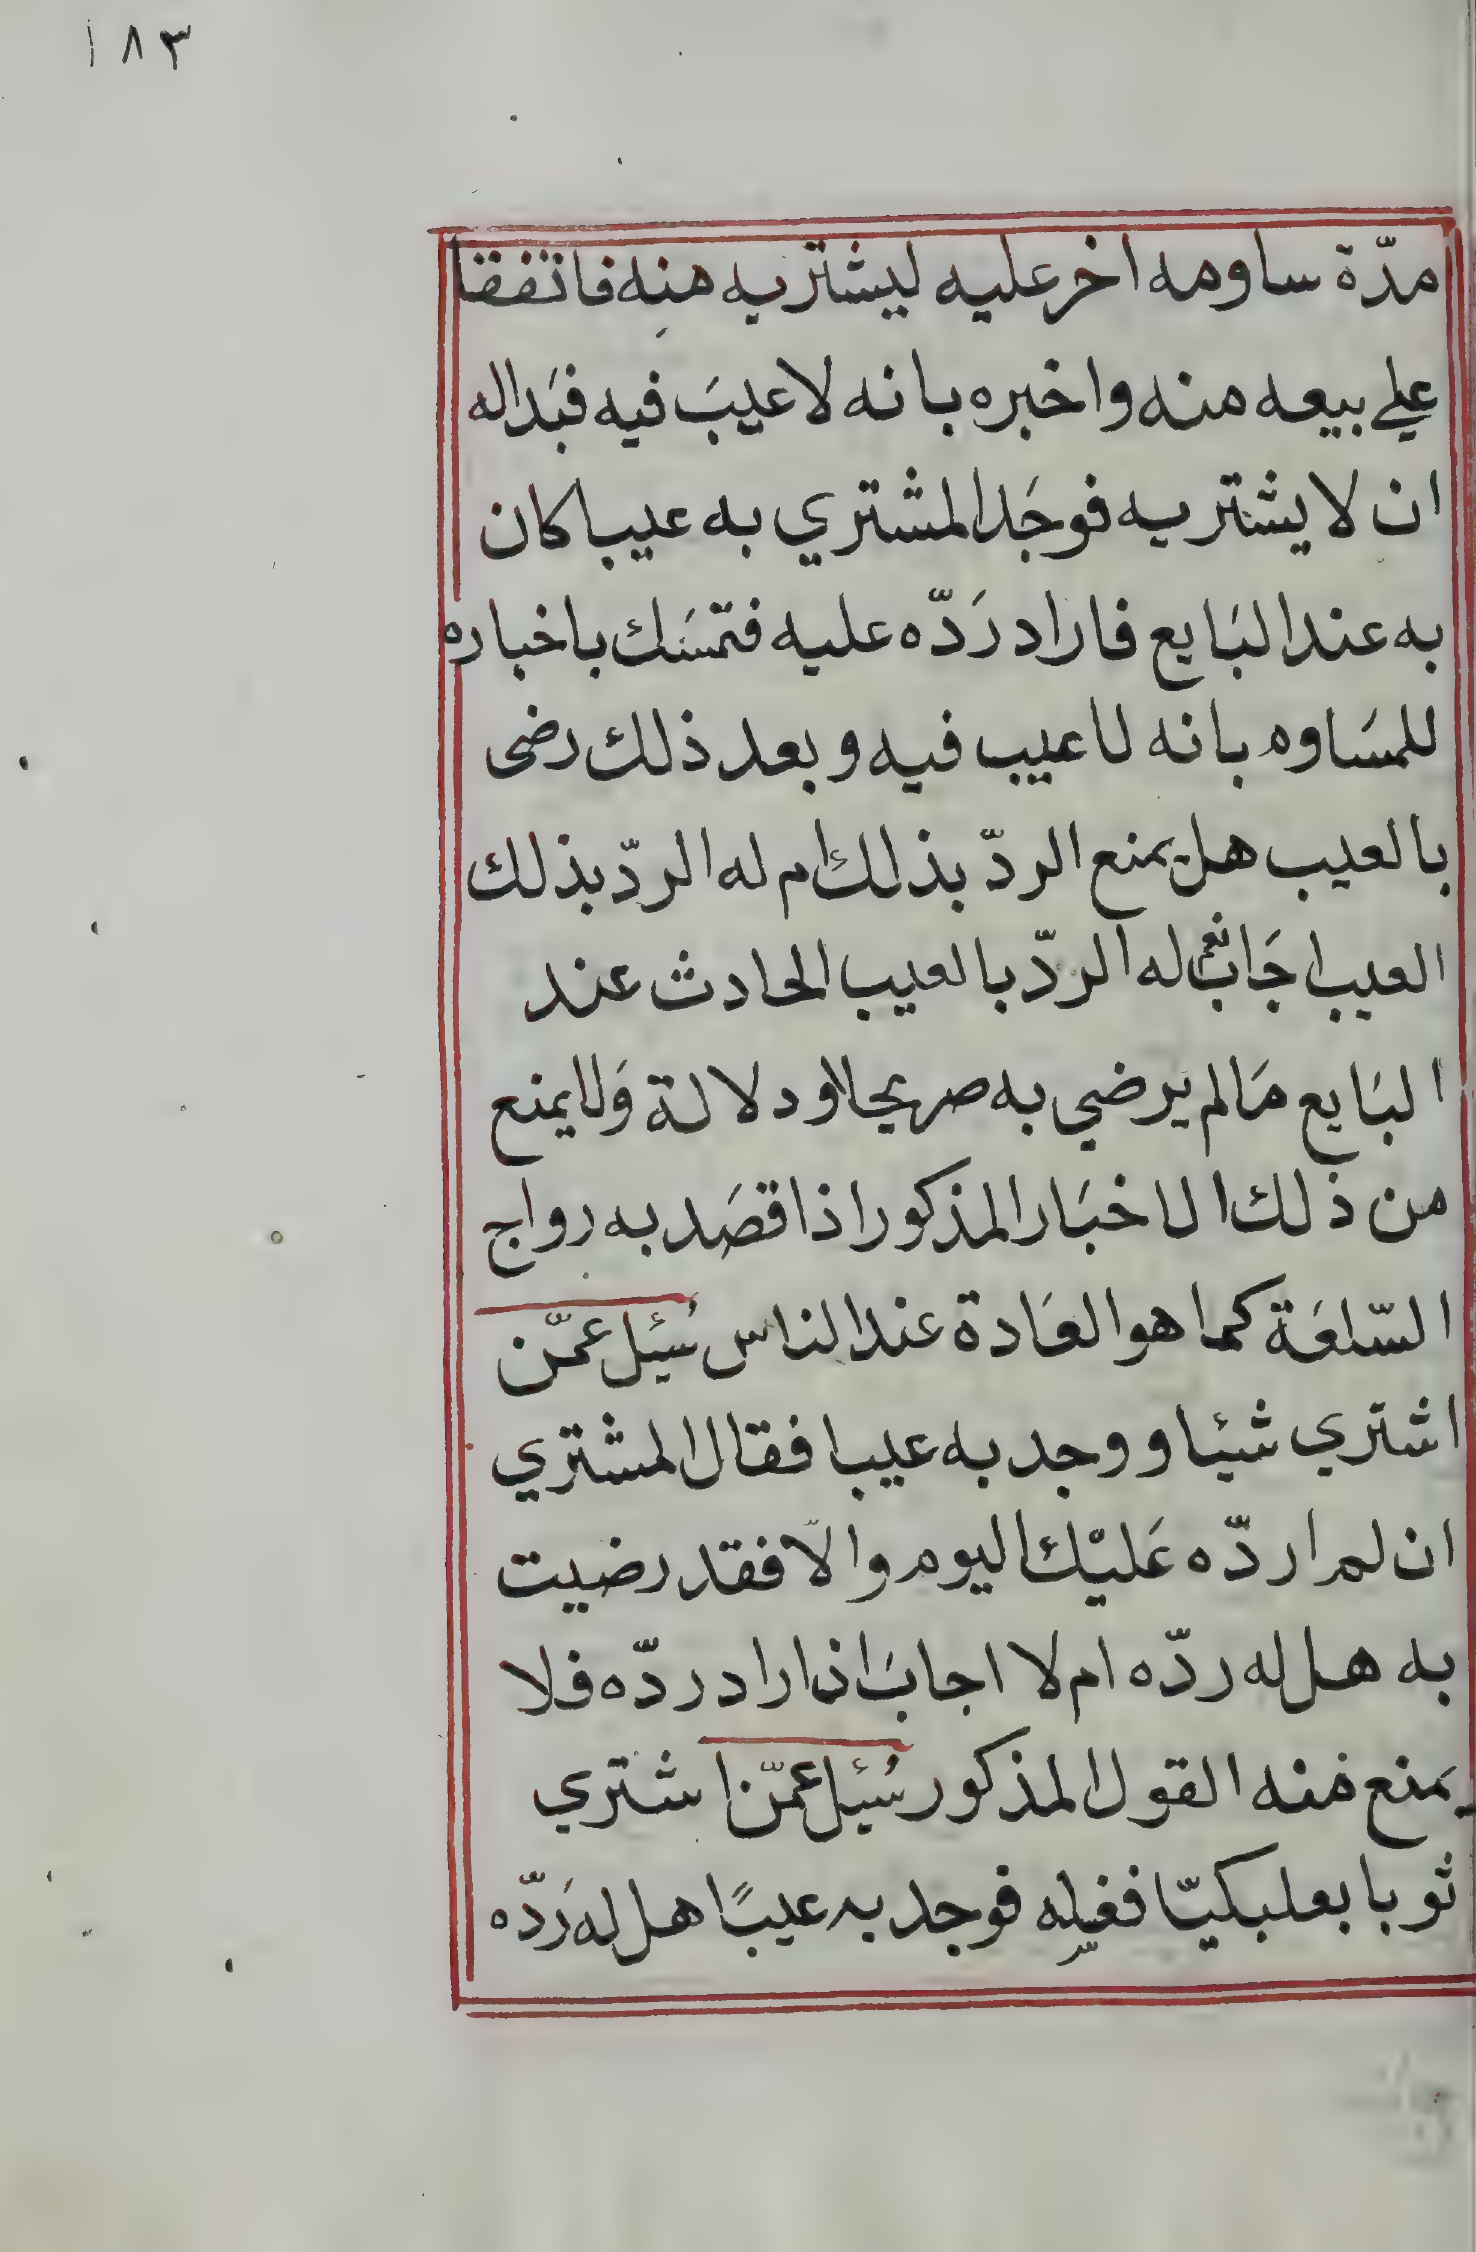 ١٨٣
مدّة ساومه اخر عليه ليشتريه منه فاتفقا
علي بيعه منه واخبره بانه لا عيبَ فيه فبَدا له
ان لا يشتريه فوجَد المشتري به عيبا كان
به عند البَايع فاراد رَدّه عليه فتمسَك باخباره
للمسَاوم بانه لا عيب فيه وبعد ذلك رضى
بالعيب هل يمنع الردّ بذلك ام له الردّ بذلك
العيب اجَاب نعم له الردّ بالعيب الحادث عند
البَايع مَا لم يَرضي به صريحا او دلالة وَلا يمنع
من ذلك الاخبَار المذكور اذا قصَد به رواج
السّلعَة كما هو العَادة عند الناس سُئِل عمّن
اشتري شيئا ووجد به عيبا فقال المشتري
ان لم ارده عَليْك اليوم والاّ فقد رضيت
به هل له ردّه ام لا اجابَ اذا اراد ردّه فلا
يمنع منه القول المذكور سُئِل عمّن اشتري
ثوبا بعلبكيّا فغسله فوجد به عيبًا هل له رَدّه